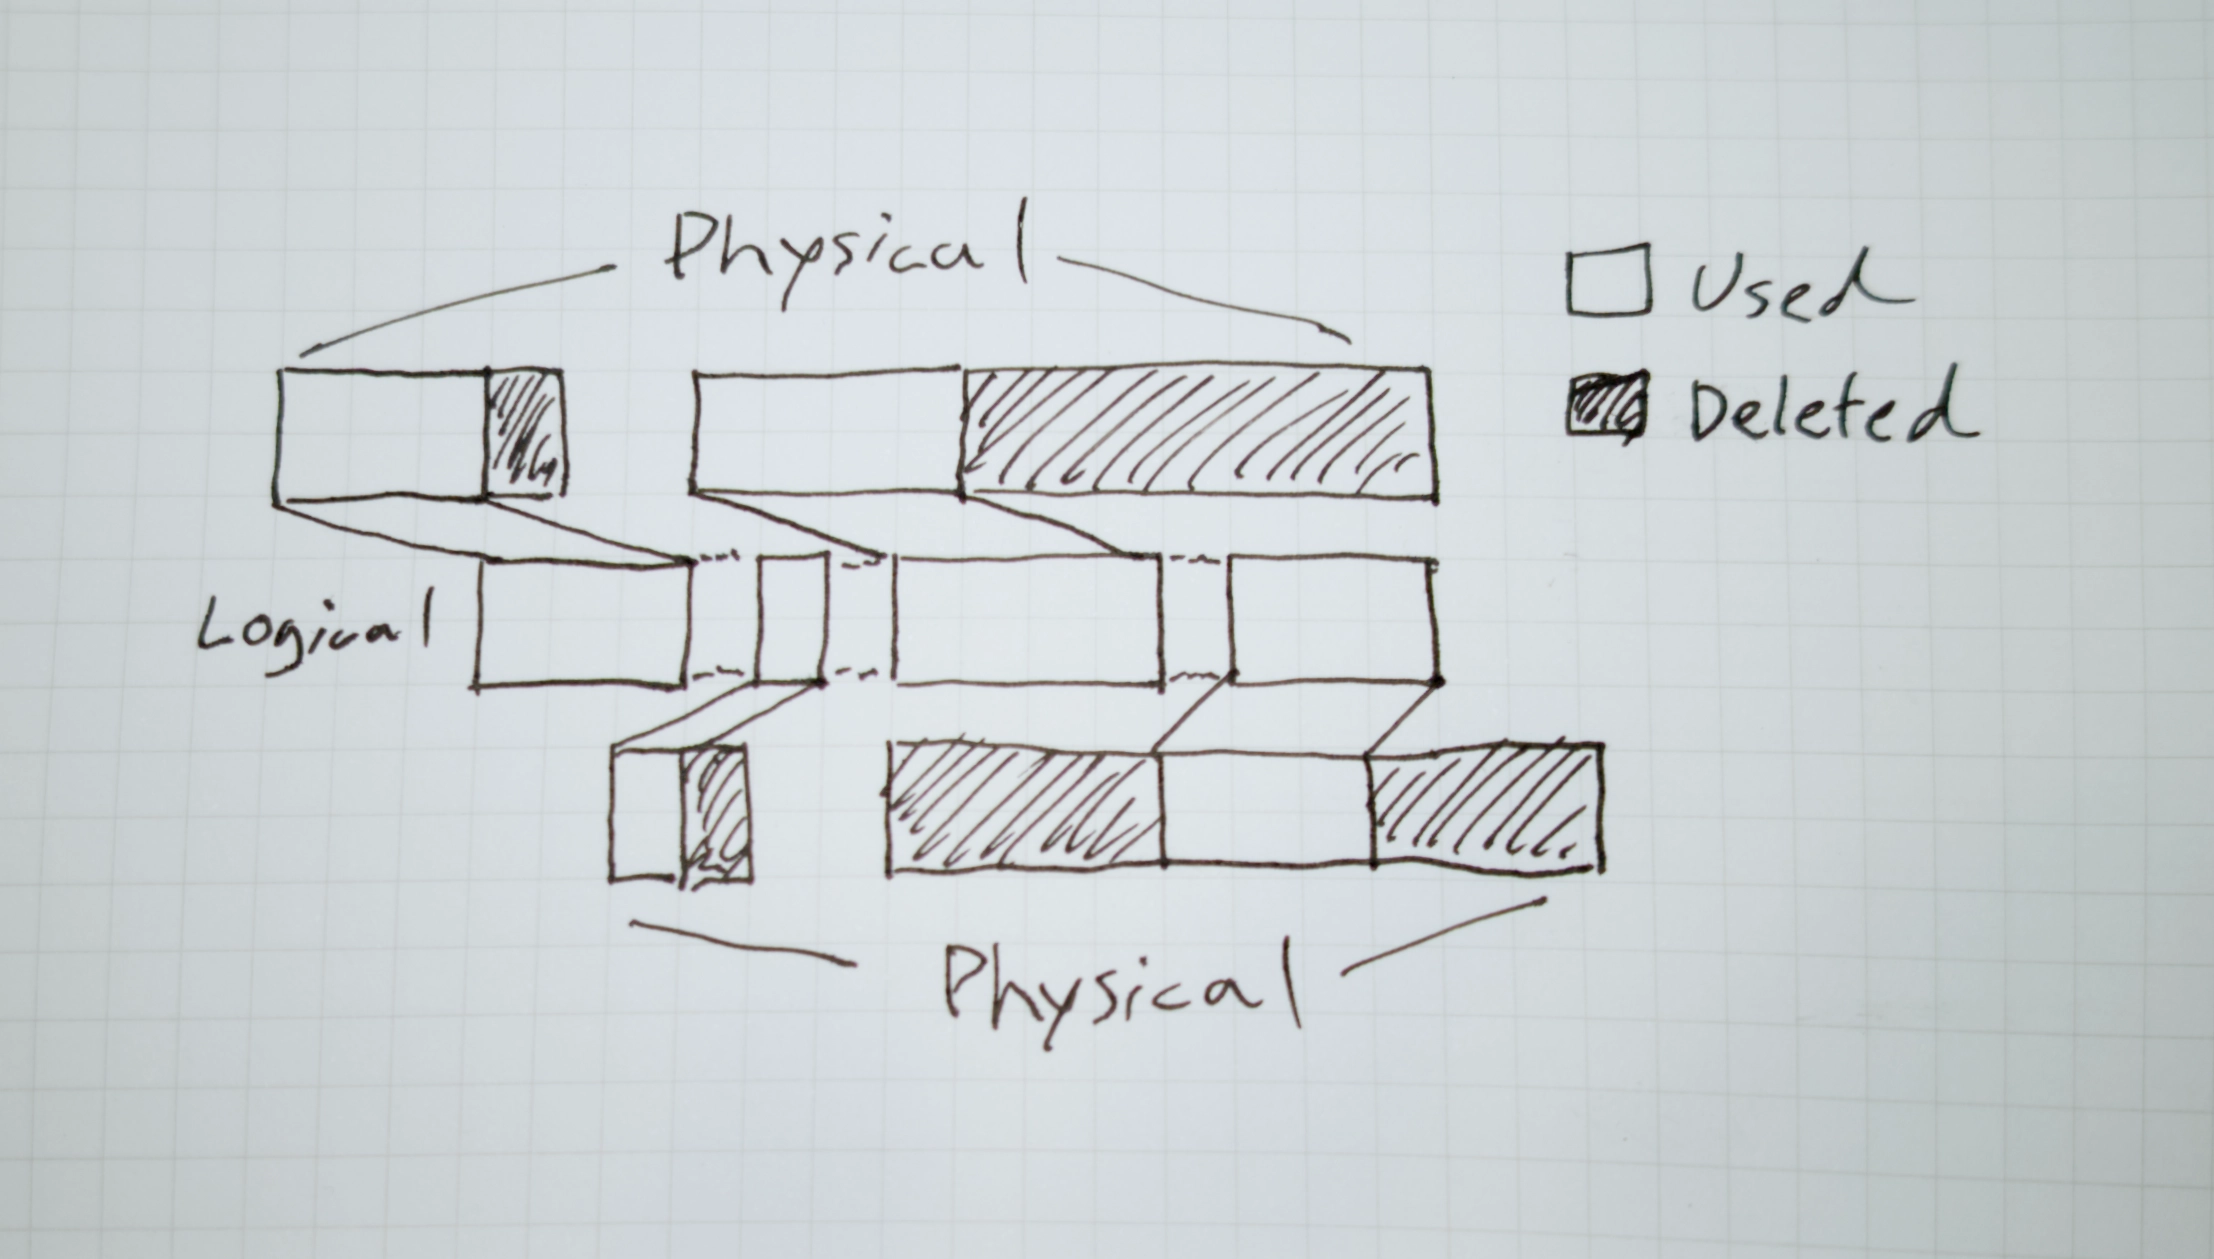 Physical
Used
Deleted
Logical
Physical